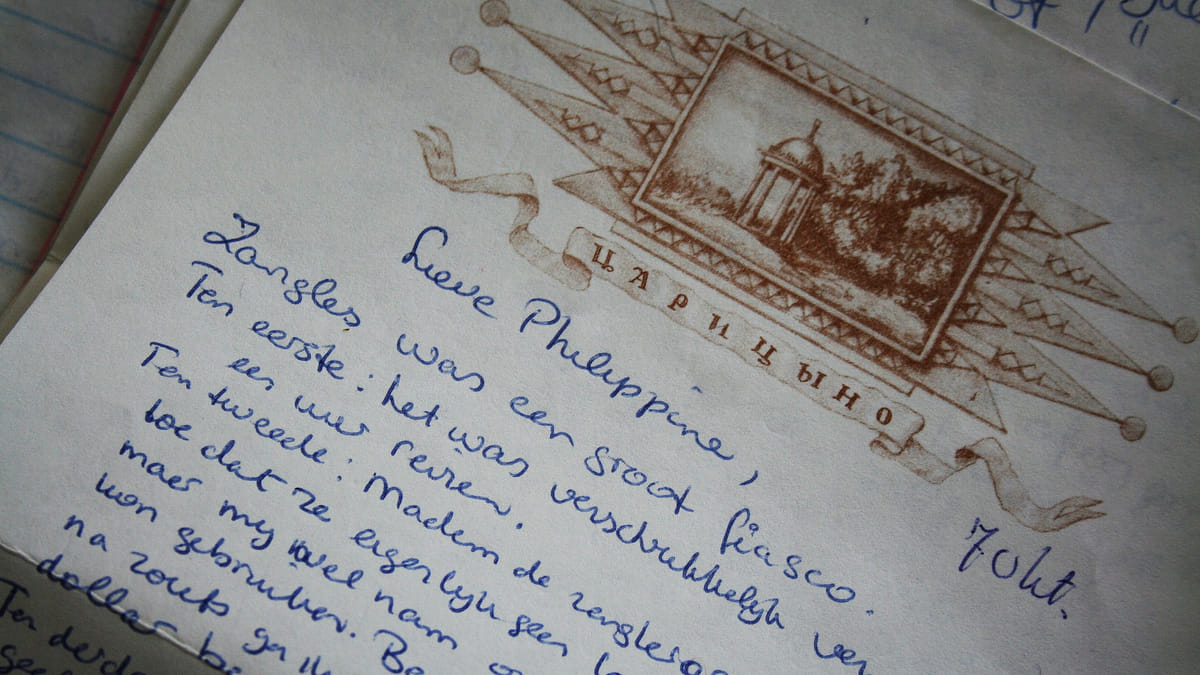 ЦАРИЦЫНО
7 okt.
Lieve Philippine,
Zangles was een groot fiasco.
Ten eerste: het was verschrikkelijk ver
een uur reizen.
Ten tweede: Madem de zanglerares
toe dat ze eigenlijk geen
maar mij wel nam
kon gebruiken. Be
na zoiets ga ik
dollar be
Ten derde